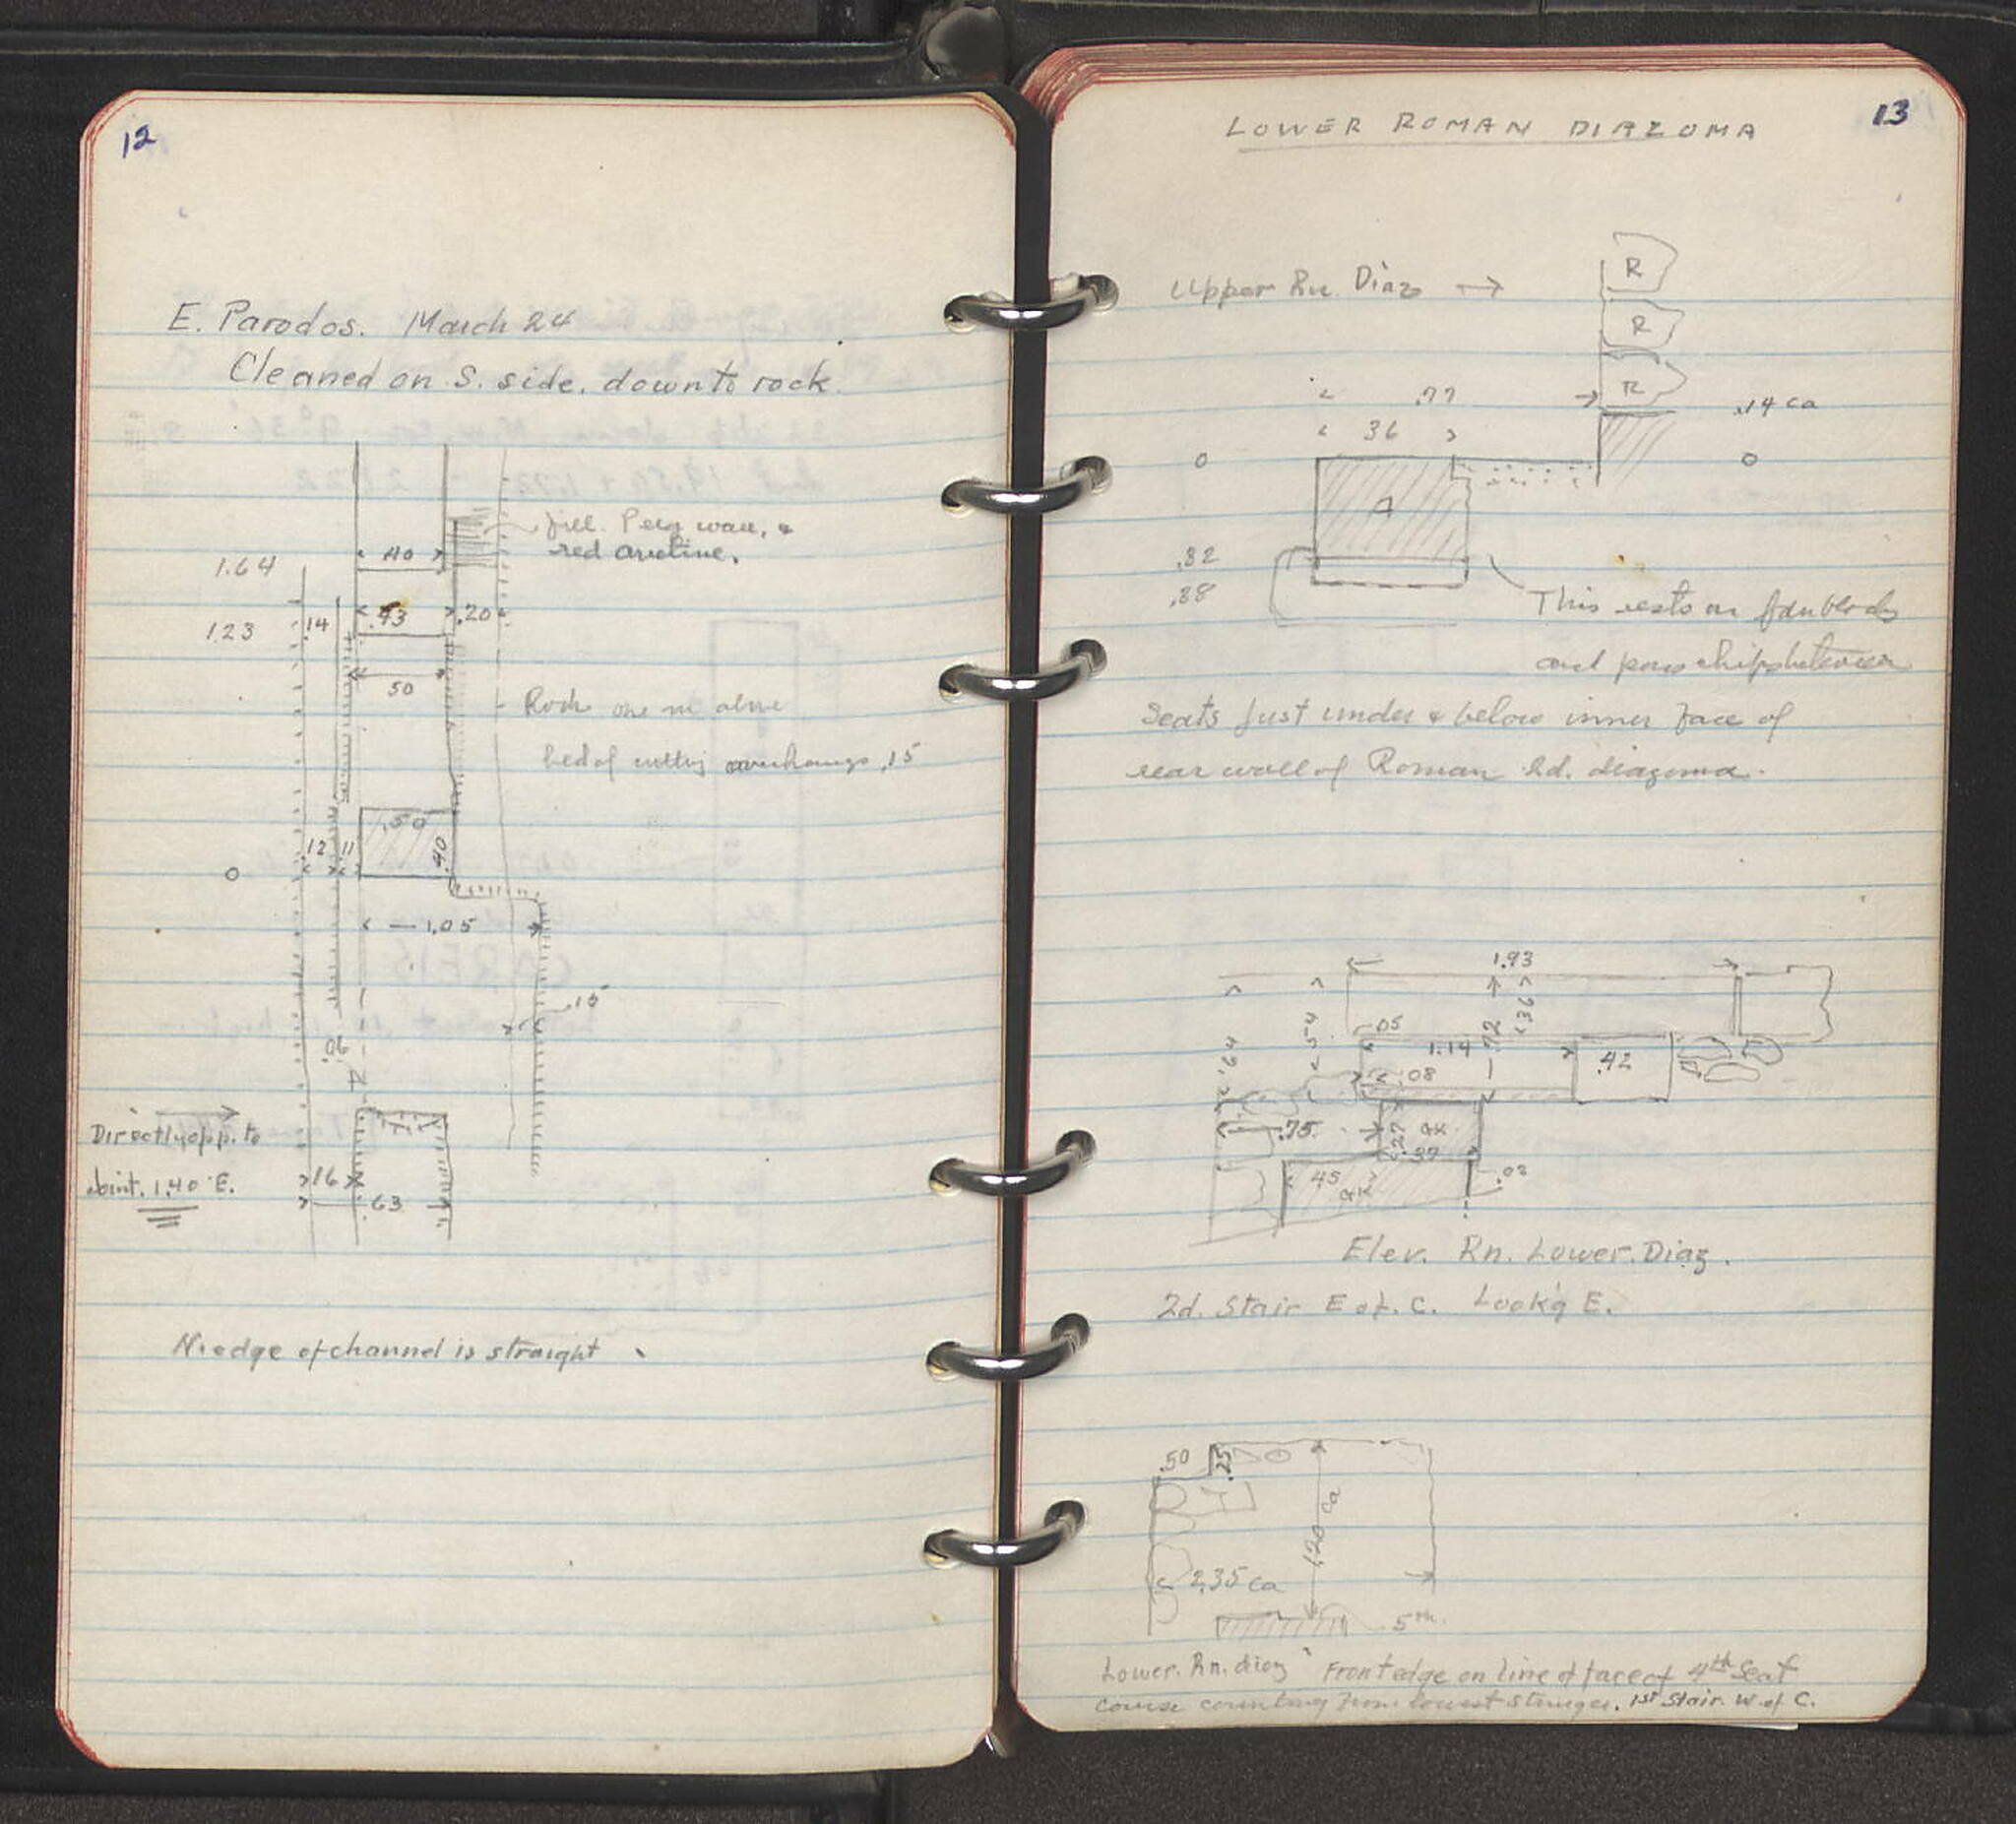 12
E. Parodos. March 24
Cleaned on S. side. down to rock.
fill. Perg wall, &
red aretine.
1.64
.40
1.23
.14
.43
.20
.50
Rock one m above
bed of cutting overhangs .15
.50
.40
.12
.11
0
1.05
.15
.06
Directly opp. to
Joint. 1.40 E.
.16
.63
N. edge of channel is straight
13
LOWER ROMAN DIAZOMA
Upper Rn. Diaz →
R
R
R
.77
.14 ca
.36
0
0
A
.32
.38
This rests on
and poros chips between
Seats just under & below inner face of
rear wall of Roman 2d. diazoma.
1.93
.05
.36
.54
.72
.64
1.14
.42
.08
.75
.27
GK
.37
.45
GK
.02
Elev. Rn. Lower. Diaz.
2d. Stair E of. C. Look'g E.
.50
.25
1.20 ca
2.35 ca
5th.
Lower. Rn. diaz Front edge on line of face of 4th Seat
course counting from lowest 1st Stair. W. of C.